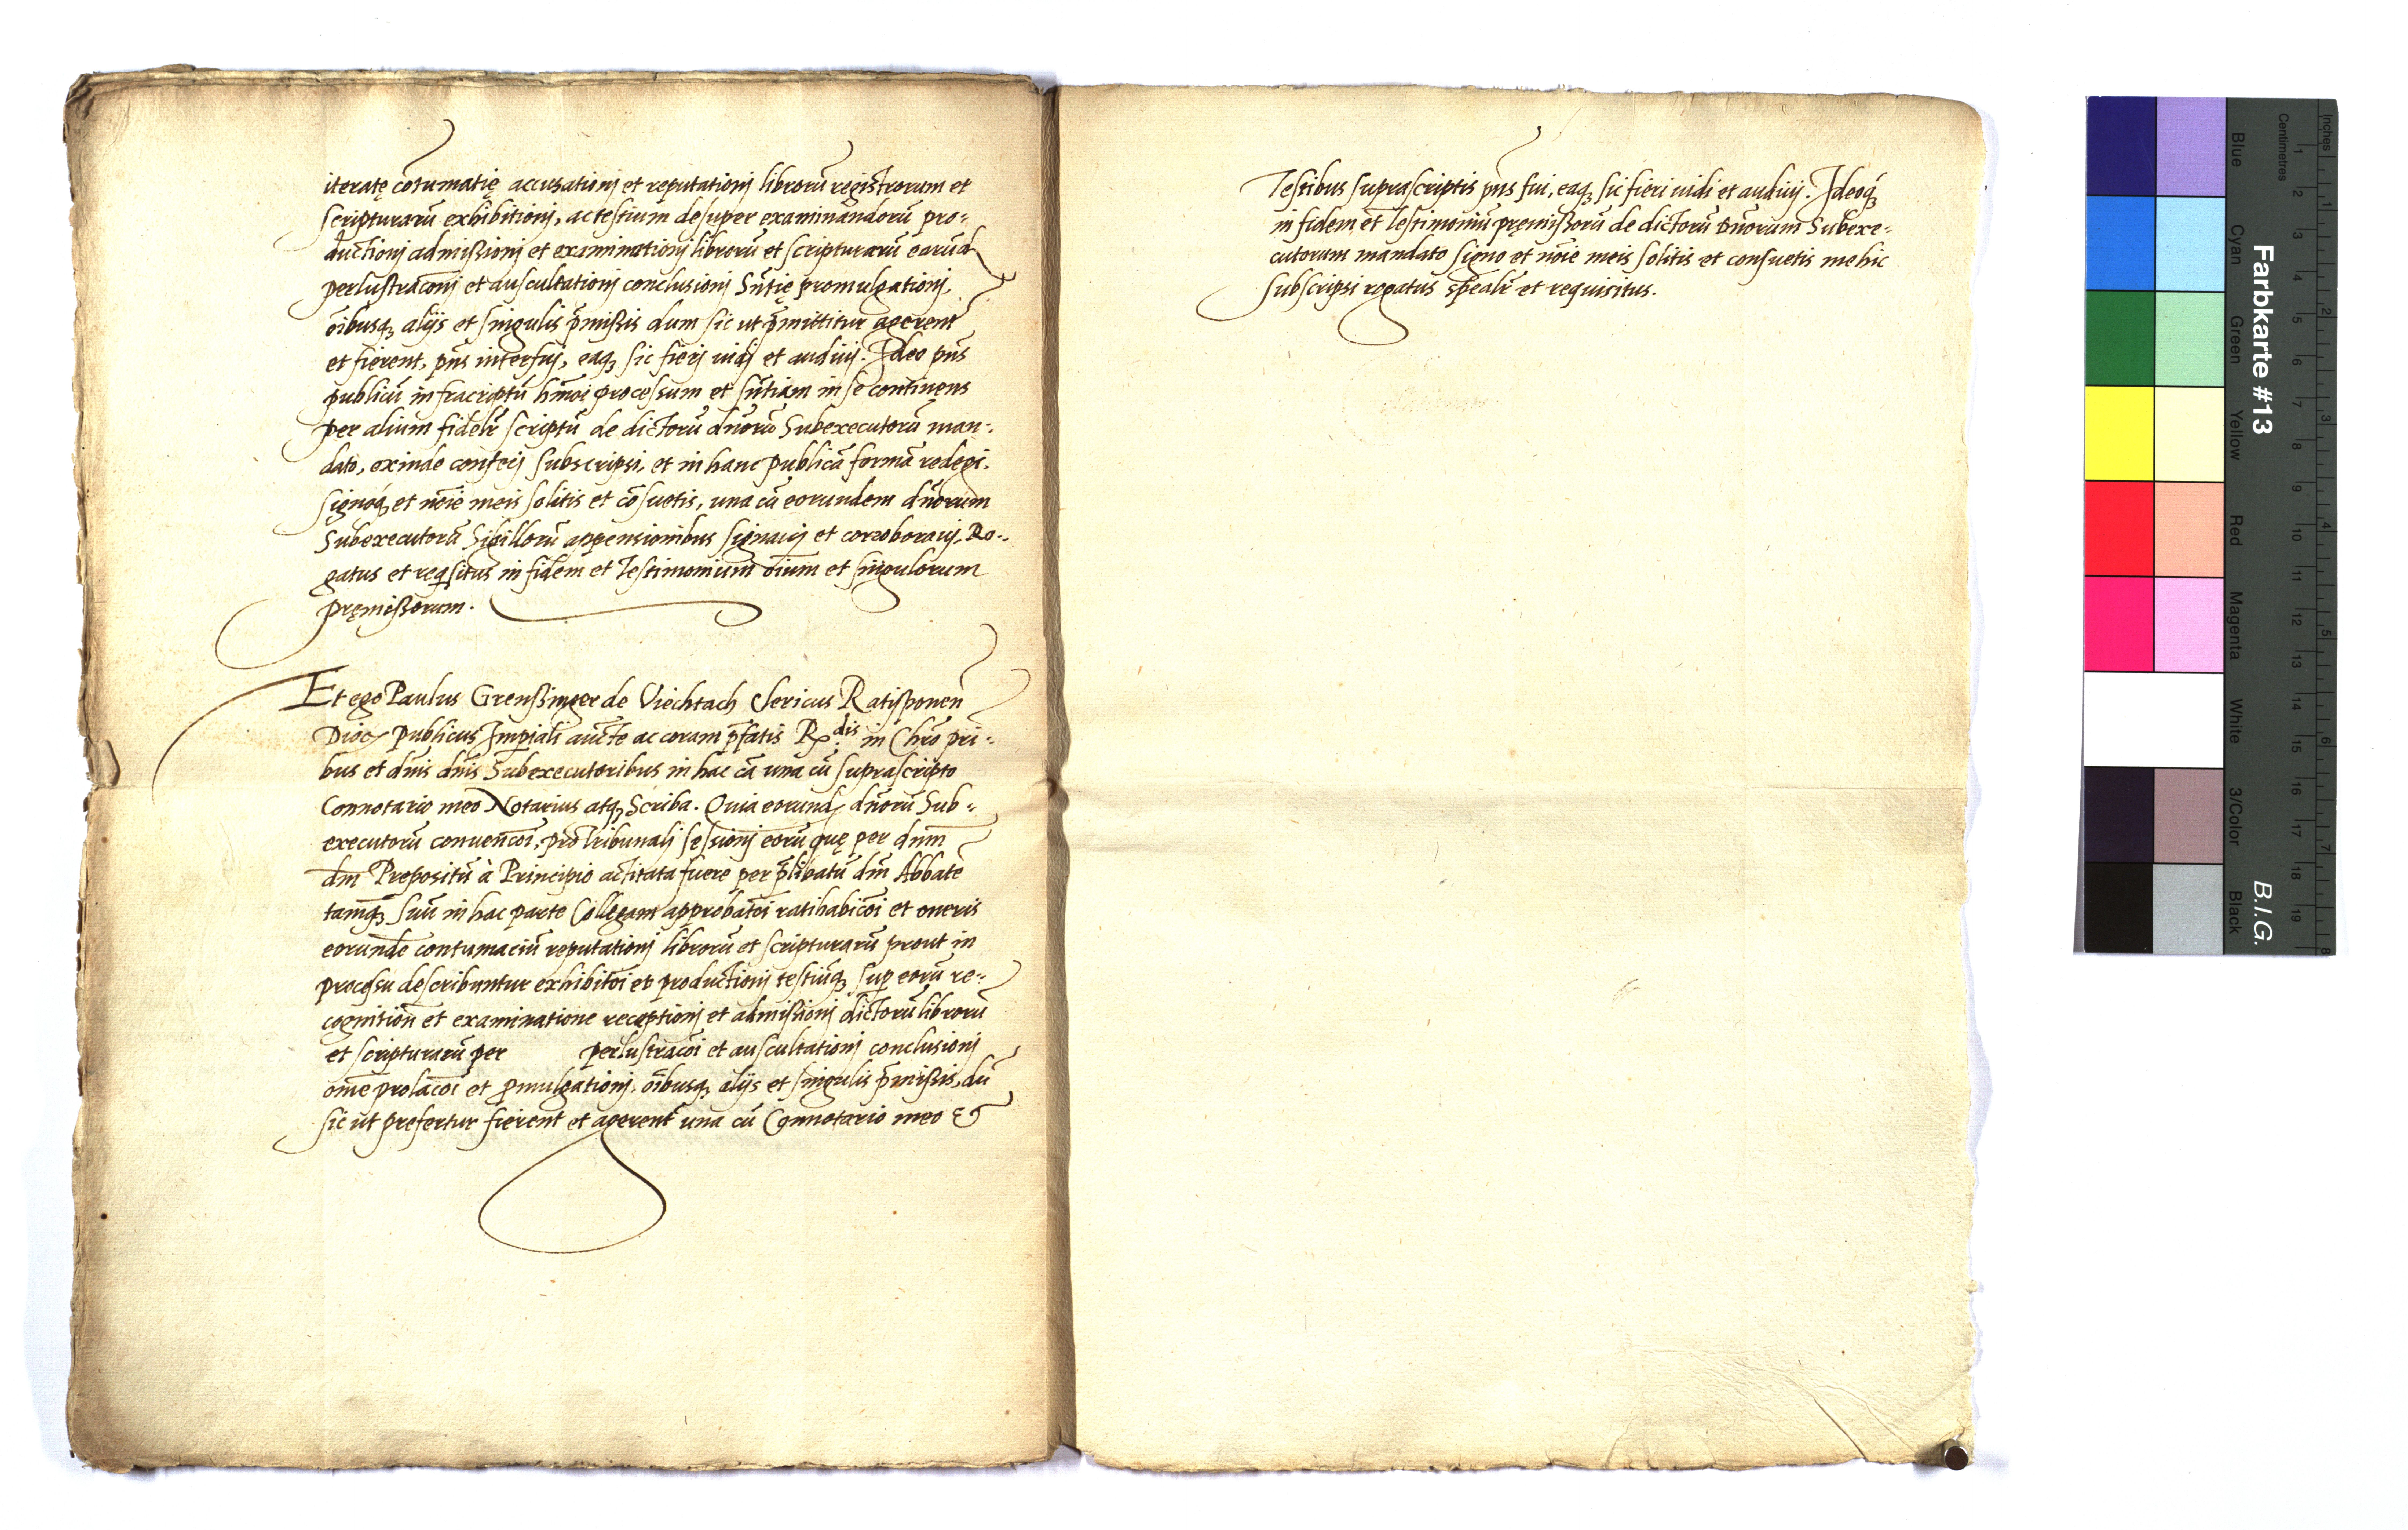 iteratę cōtumatię accusationj et reputationj librorū registrorum et
scripturarū exhibitionj, ac testium desuper examinandorū pro⸗
ductionj admissionj et examinationj librorū et scripturarū earūd
perlustraconj et auscultationj conclusionj Sn̄tię promulgationj,
oībusqꝫ alijs et singulis p̄missis dum sic ut p̄mittitur agerent̄
et fierent, pn̄s interfuj, eaqꝫ sic fierj vidj et audiuj. Ideo pn̄s
publicū infracriptū hm̄oi processum et sn̄tiam in se continens
per alium fidelr̄ scriptū de dictorū dn̄orū Subexecutorū man⸗
dato, exinde confecj subscripsi, et in hanc publicā formā redegi.
signoqꝫ et noīe meis solitis et cōsuetis, una cū eorundem dn̄orum
Subexecutorū Sigillorū appensionibus signauj et corroborauj, Ro⸗
gatus et reqsitus in fidem et Testimonium oīum et singulorum
pręmissorum.
Et ego Paulus Grenssinger de Viechtach Clericus Ratisponen̄
Dioc publicus Imp̄iali aucte ac coram p̄fatis R.dis in Chr̄o pri⸗
bus et dnīs dnīs Subexecutoribus in hac cā una cū suprascripto
Connotario meo Notarius atqꝫ Scriba. Quia eorund dn̄orū Sub⸗
executorū conuencoī, pro Tribunalj sessionj eorū quę per dnm̄
dm̄ Prepositū à Principio actitata fuere per p̄libatū dm̄ Abbatē
tamqꝫ suū in hac parte Collegam approbatoī ratihabicoī et oneris
eorundē contumaciū reputationj librorū et scripturarū prout in
processu describuntur exhibitoī et productionj testiūqꝫ sup eorū re⸗
cognition̄ et examinatione receptionj et admissionj dictorū librorū
et scripturarū per perlustracoī et auscultationj conclusionj
om̄e prolacoī et p̱mulgationj, oībusqꝫ alijs et singulis p̄missis, dū
sic ut prefertur fierent et agerent̄ una cū Connotario meo et
Testibus suprascriptis pn̄s fui, eaqꝫ sic fieri uidi et audiuj. Ideoqꝫ
in fidem et Testimoniū pręmissorū de dictorū Dn̄orum Subexe⸗
cutorum mandato signo et noīe meis solitis et consuetis me hic
subscripsi rogatus spealr̄ et requisitus.
Farbkarte #13
B.I.G.
Blue
Cyan
Green
Yellow
Red
Magenta
White
3/Color
Black
Centimetres
Inches
1 2 3 4 5 6 7 8 9 10 11 12 13 14 15 16 17 18 19
1 2 3 4 5 6 7 8